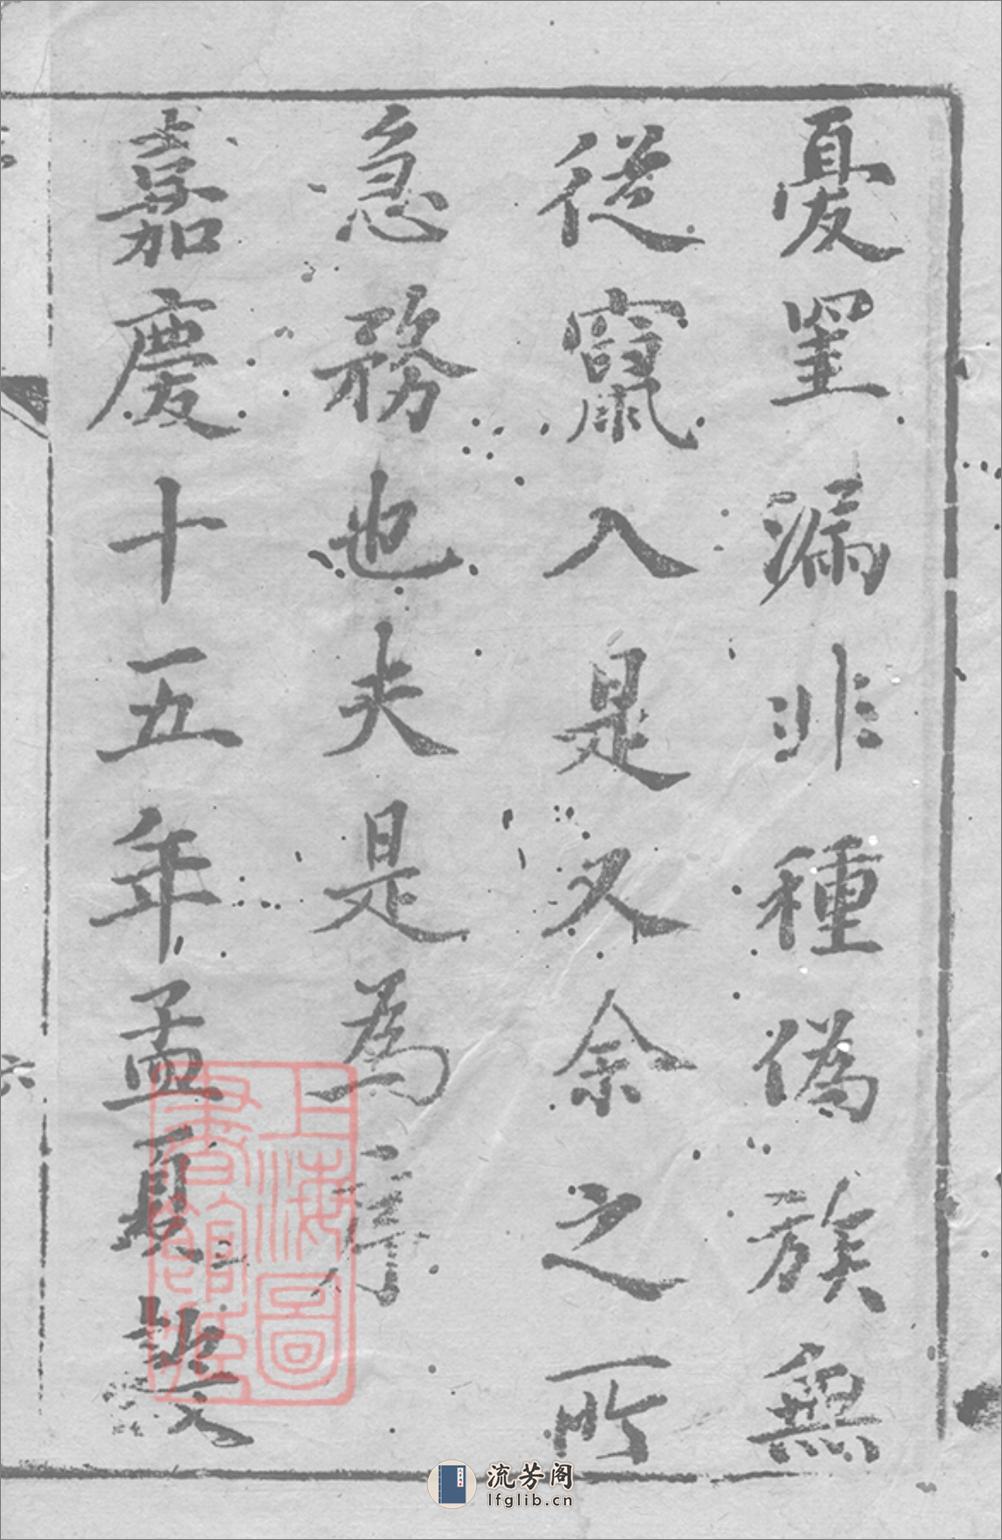 憂罣漏非種偽族無
從竄入是又余之所
急務也夫是為序
嘉慶十五年孟夏
上海圖
書館藏
六
流芳阁
lfglib.cn